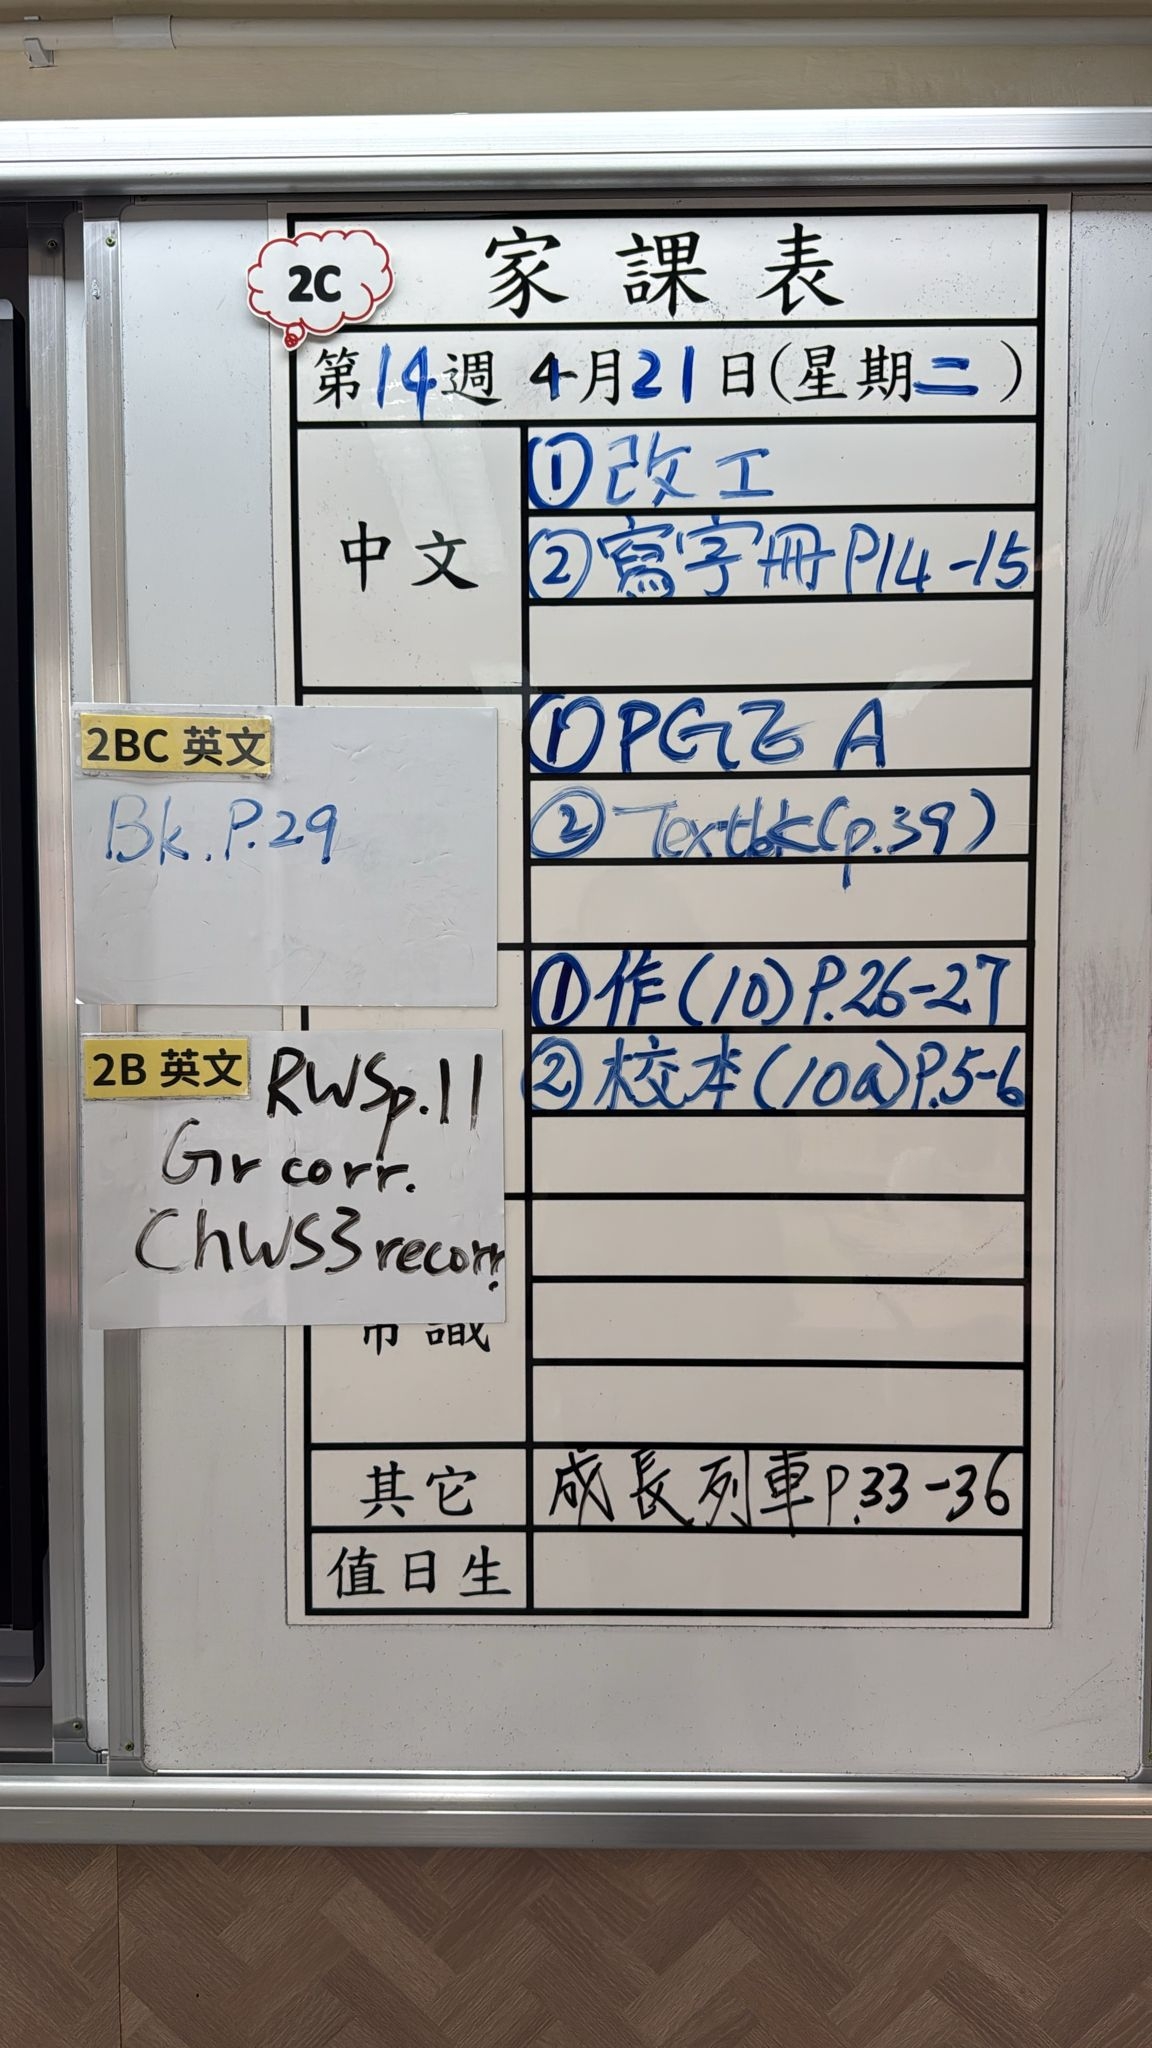 2C
家課表
第14週 4月21日(星期二)
中文
①改工
②寫字冊P14-15
2BC 英文
Bk. P.29
①PGE A
②Textbk(p.39)
①作(10)P.26-27
②校本(10a)P.5-6
2B 英文
RWSp.11
Gr corr.
ChWS3 recorr.
常識
其它
成長列車P.33-36
值日生